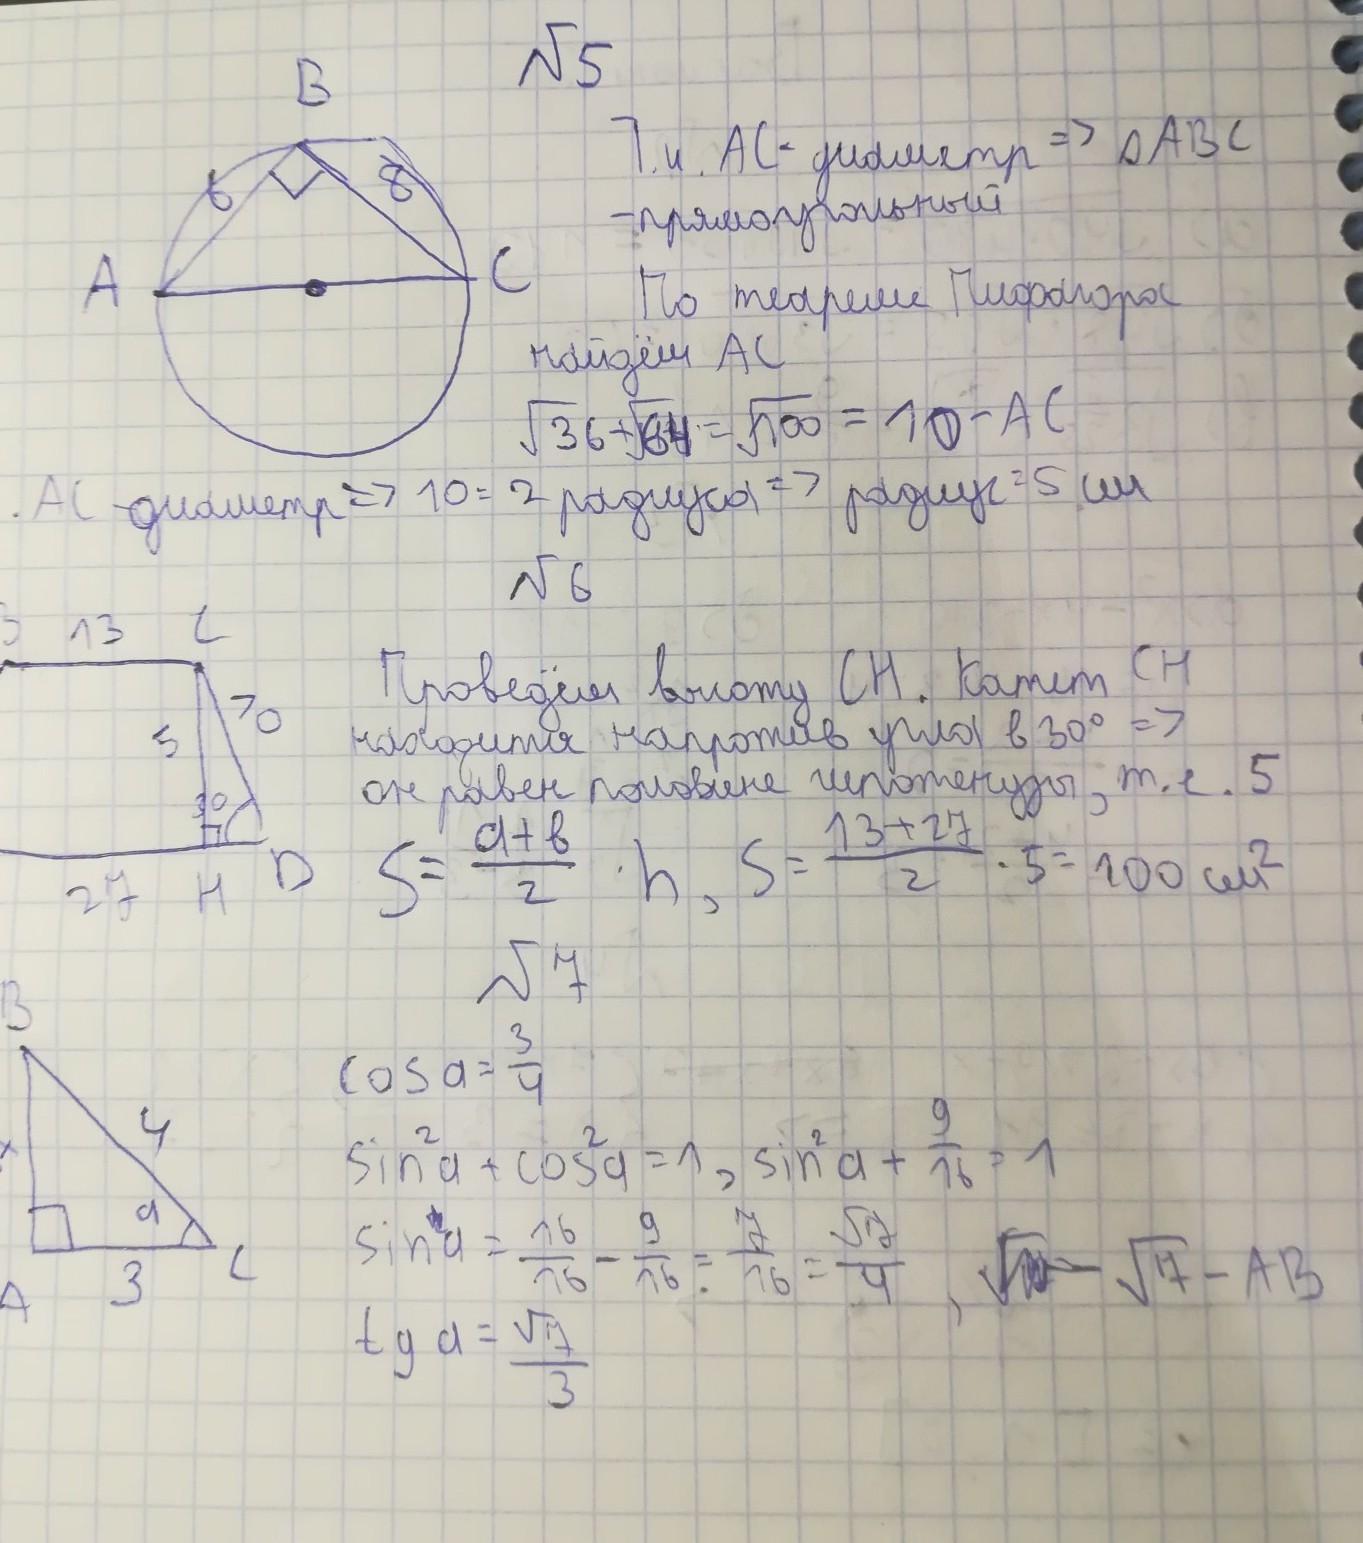 №5
B
6
8
A
C
Т.и. AC - диаметр => △ABC
-прямоугольный
По теореме Пифагора
найдём AC
√36+√64 = √100 = 10 - AC
. AC - диаметр => 10 = 2 радиуса => радиус = 5 см
№6
13 C
5
10
30
27 H D
Проведём высоту CH. Катет CH
находится напротив угла в 30° =>
он равен половине гипотенузы, т.е. 5
S = (a+b)/2 · h, S = (13+27)/2 · 5 = 100 см²
№7
B
4
x
a
A 3 C
cos a = 3/4
sin²a + cos²a = 1, sin²a + 9/16 = 1
sin a = 16/16 - 9/16 = 7/16 = √7/4 , √7 - AB
tg a = √7/3